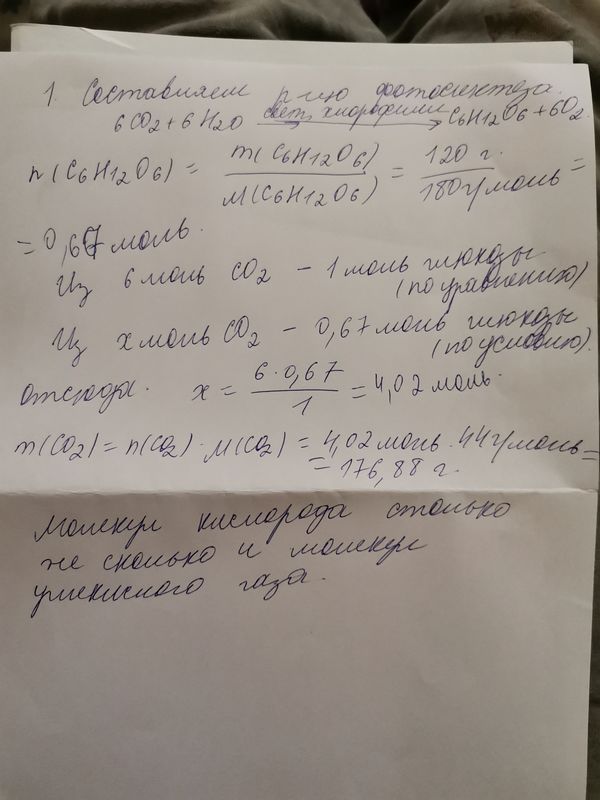 1. Составляем р-цию фотосинтеза.
6CO2 + 6H2O свет, хлорофилл → C6H12O6 + 6O2.
n(C6H12O6) = m(C6H12O6) / M(C6H12O6) = 120 г. / 180 г/моль =
= 0,67 моль.
Из 6 моль CO2 – 1 моль глюкозы
(по уравнению)
Из x моль CO2 – 0,67 моль глюкозы
(по условию).
отсюда. x = 6·0,67 / 1 = 4,02 моль.
m(CO2) = n(CO2) · M(CO2) = 4,02 моль · 44 г/моль =
= 176,88 г.
Молекул кислорода столько
же сколько и молекул
углекислого газа.